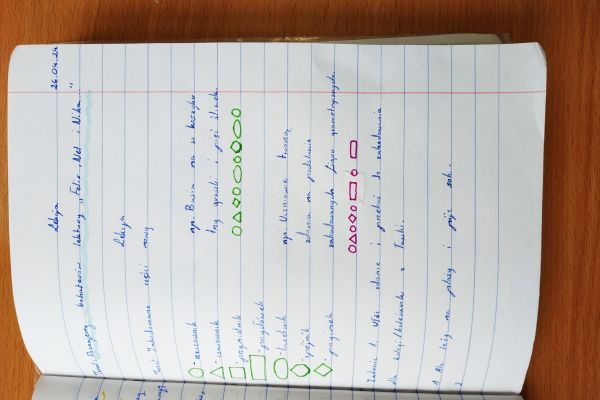 Lekcja 26.04.24
Temat: bohaterów lektury „Felix, Net i Nika..."
Lekcja
Temat: Zakodowane części mowy
- rzeczownik
- czasownik
- przymiotnik
- przysłówek
- liczebnik
- spójnik
- przyimek
np. Basia ma w koszyku
trzy gruszki i pięć śliwek.
np. Uczniowie tworzą
zdania na podstawie
zakodowanych figur geometrycznych.
Zadanie 1. Ułóż zdanie i przekaż do zakodowania
dla kolegi/koleżanki z ławki.
1. Ala leży na plaży i pije sok.
2